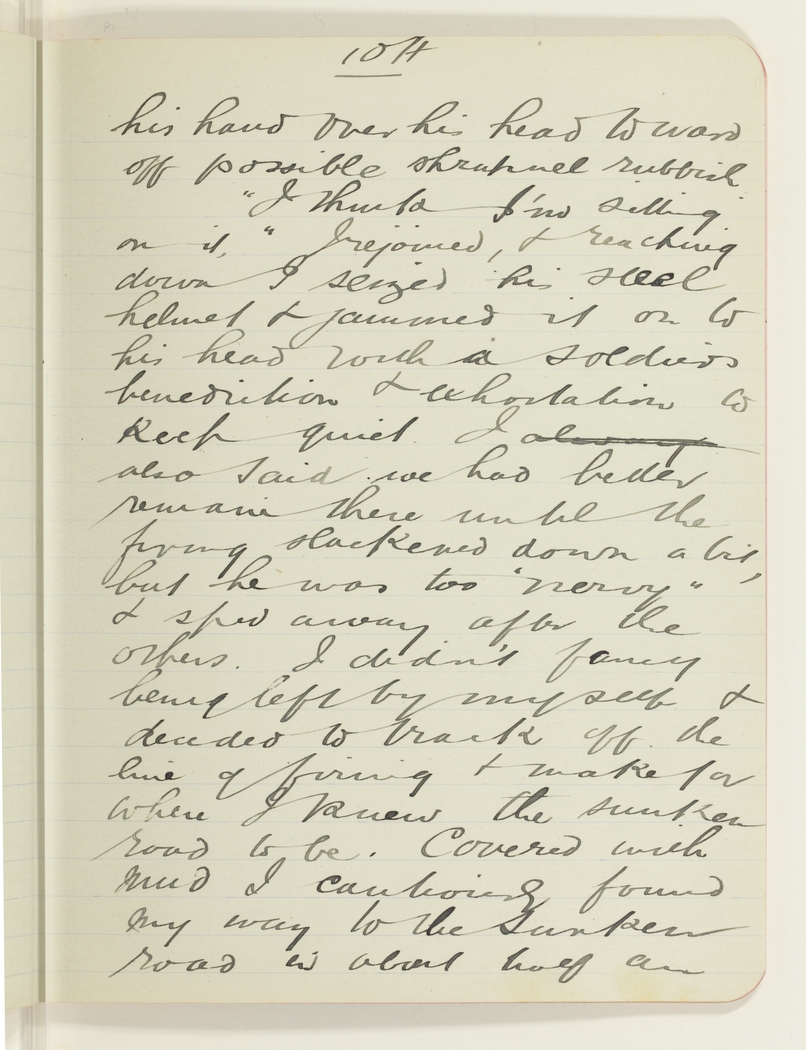 104
his hand over his head to ward
off possible shrapnel rubbish
"I think I'm sitting
on it," I rejoined, & reaching
down I seized his steel
helmet & jammed it on to
his head with a soldiers
benediction & exhortation to
keep quiet. I always
also said we had better
remain there until the
firing slackened down a bit,
but he was too "nervy"
& sped away after the
others. I didn't fancy
being left by myself &
decided to track off the
line of firing & make for
where I knew the sunken
road to be. Covered with
mud I cautiously found
my way to the Sunken
road in about half an